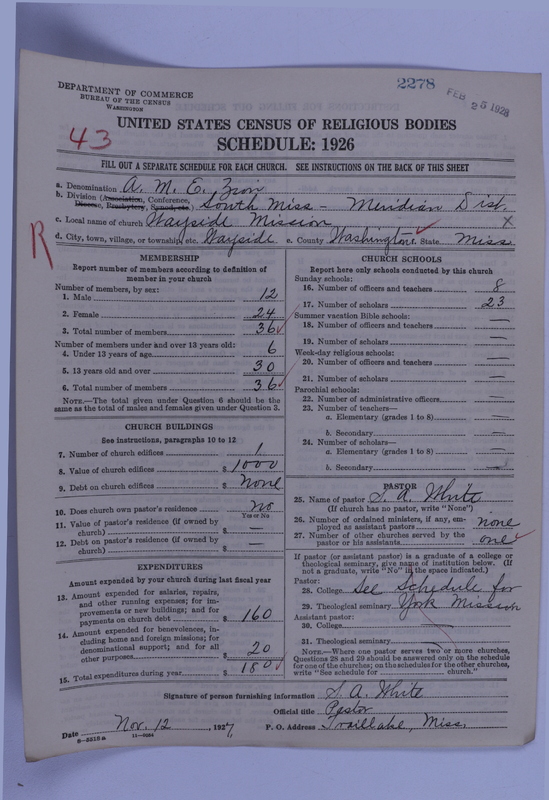 2278
FEB 25 1928
DEPARTMENT OF COMMERCE
BUREAU OF THE CENSUS
WASHINGTON
43
UNITED STATES CENSUS OF RELIGIOUS BODIES
SCHEDULE: 1926
FILL OUT A SEPARATE SCHEDULE FOR EACH CHURCH. SEE INSTRUCTIONS ON THE BACK OF THIS SHEET
a. Denomination A. M. E. Zion
b. Division (Association, Conference, Diocese, Presbytery, Synod, etc.) South Miss – Meridian Dist.
c. Local name of church Wayside Mission X
d. City, town, village, or township, etc. Wayside e. County Washington f. State Miss.
R
MEMBERSHIP
Report number of members according to definition of
member in your church
Number of members, by sex:
1. Male 12
2. Female 24
3. Total number of members 36
Number of members under and over 13 years old:
4. Under 13 years of age 6
5. 13 years old and over 30
6. Total number of members 36
NOTE.—The total given under Question 6 should be
the same as the total of males and females given under Question 3.
CHURCH BUILDINGS
See instructions, paragraphs 10 to 12
7. Number of church edifices 1
8. Value of church edifices $ 1000
9. Debt on church edifices $ None
10. Does church own pastor's residence no
Yes or No
11. Value of pastor's residence (if owned by
church) $ —
12. Debt on pastor's residence (if owned by
church) $ —
EXPENDITURES
Amount expended by your church during last fiscal year
13. Amount expended for salaries, repairs,
and other running expenses; for im-
provements or new buildings; and for
payments on church debt $ 160
14. Amount expended for benevolences, in-
cluding home and foreign missions; for
denominational support; and for all
other purposes 20
15. Total expenditures during year $ 180
CHURCH SCHOOLS
Report here only schools conducted by this church
Sunday schools:
16. Number of officers and teachers 8
17. Number of scholars 23
Summer vacation Bible schools:
18. Number of officers and teachers —
19. Number of scholars —
Week-day religious schools:
20. Number of officers and teachers —
21. Number of scholars —
Parochial schools:
22. Number of administrative officers —
23. Number of teachers—
a. Elementary (grades 1 to 8) —
b. Secondary —
24. Number of scholars—
a. Elementary (grades 1 to 8) —
b. Secondary —
PASTOR
25. Name of pastor S. A. White
(If church has no pastor, write "None")
26. Number of ordained ministers, if any, em-
ployed as assistant pastors none
27. Number of other churches served by the
pastor or his assistants one
If pastor (or assistant pastor) is a graduate of a college or
theological seminary, give name of institution below. (If
not a graduate, write "No" in the space indicated.)
Pastor:
28. College See Schedule for
29. Theological seminary York Mission
Assistant pastor:
30. College —
31. Theological seminary —
NOTE.—Where one pastor serves two or more churches,
Questions 28 and 29 should be answered only on the schedule
for one of the churches; on the schedules for the other churches,
write "See schedule for ............ church."
Signature of person furnishing information S. A. White
Official title Pastor
Date Nov. 12, 1927, P. O. Address Traillake, Miss.
8—5518a 11—9084